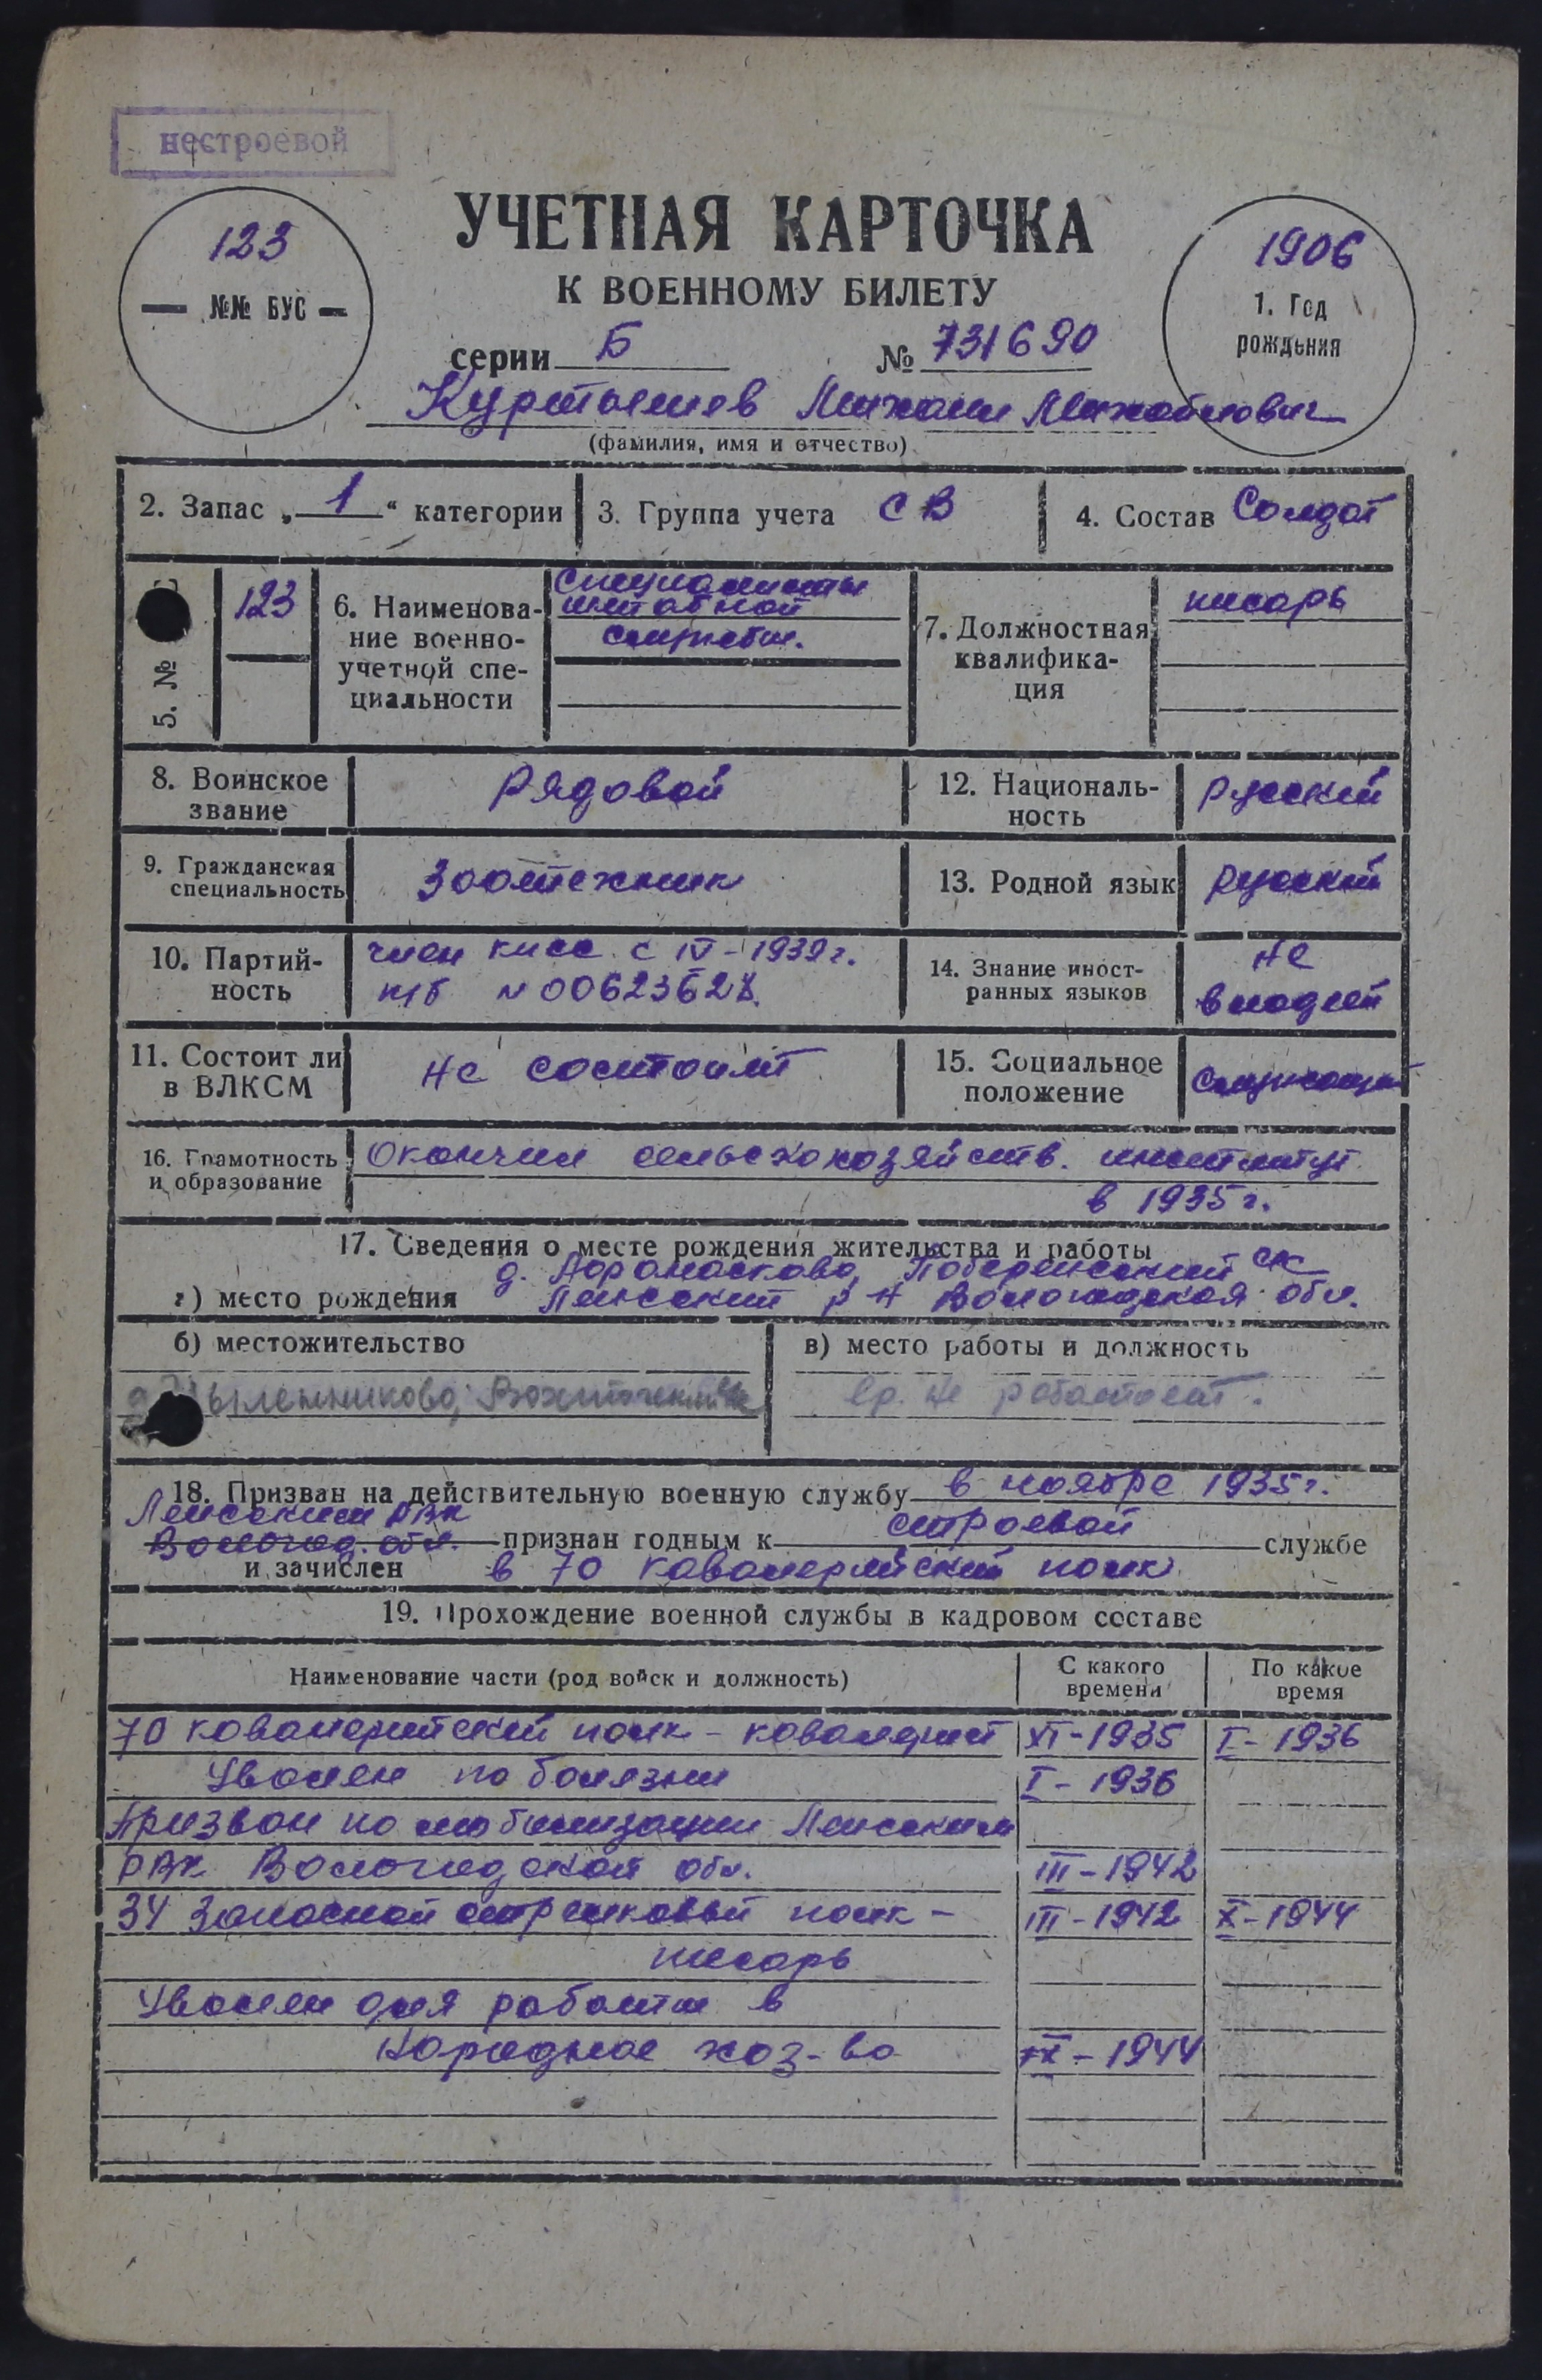 нестроевой
123
№№ БУС
УЧЕТНАЯ КАРТОЧКА
К ВОЕННОМУ БИЛЕТУ
серии Б № 731690
1906
1. Год
рождения
Михаил Михайлович
(фамилия, имя и отчество)
2. Запас „1“ категории
3. Группа учета СВ
4. Состав Солдат
5. №
123
6. Наименова-
ние военно-
учетной спе-
циальности
Специалисты
штабной
службы.
7. Должностная
квалифика-
ция
писарь
8. Воинское
звание
Рядовой
12. Националь-
ность
Русский
9. Гражданская
специальность
Зоотехник
13. Родной язык
Русский
10. Партий-
ность
член КПСС с IV-1939г.
п/б № 00623628
14. Знание иност-
ранных языков
не
владеет
11. Состоит ли
в ВЛКСМ
Не состоит
15. Социальное
положение
Служащий
16. Грамотность
и образование
Окончил сельскохозяйств. институт
в 1935 г.
17. Сведения о месте рождения жительства и работы
а) место рождения
д. с/с
Ленский р-н Вологодская обл.
б) местожительство
в) место работы и должность
вр. не работает.
18. Призван на действительную военную службу в ноябре 1935г.
Ленским РВК
Вологод. обл. признан годным к строевой службе
и зачислен в 70 кавалерийский полк
19. Прохождение военной службы в кадровом составе
Наименование части (род войск и должность)
С какого
времени
По какое
время
70 кавалерийский полк - кавалерист XI-1935 I-1936
Уволен по болезни I-1936
Призван по мобилизации Ленским
РВК Вологодской обл. III-1942
34 Запасной стрелковый полк - III-1942 X-1944
писарь
Уволен для работы в
Народное хоз-во -1944